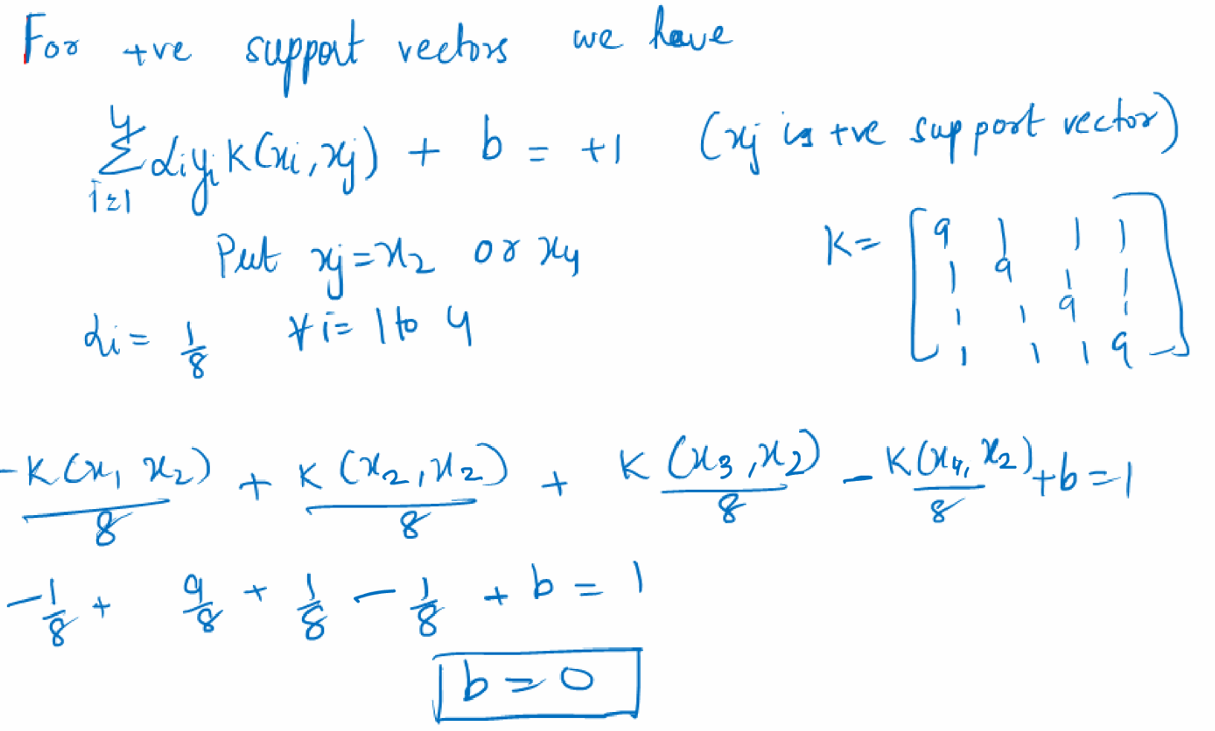 For +ve support vectors we have
4
Σ αi yi K(xi, xj) + b = +1 (xj is +ve support vector)
i=1
Put xj = x2 or x4
K = [9 1 1 1
1 9 1 1
1 1 9 1
1 1 1 9]
αi = 1/8 ∀ i = 1 to 4
-K(x1 x2)/8 + K(x2, x2)/8 + K(x3, x2)/8 - K(x4, x2)/8 + b = 1
-1/8 + 9/8 + 1/8 - 1/8 + b = 1
b = 0